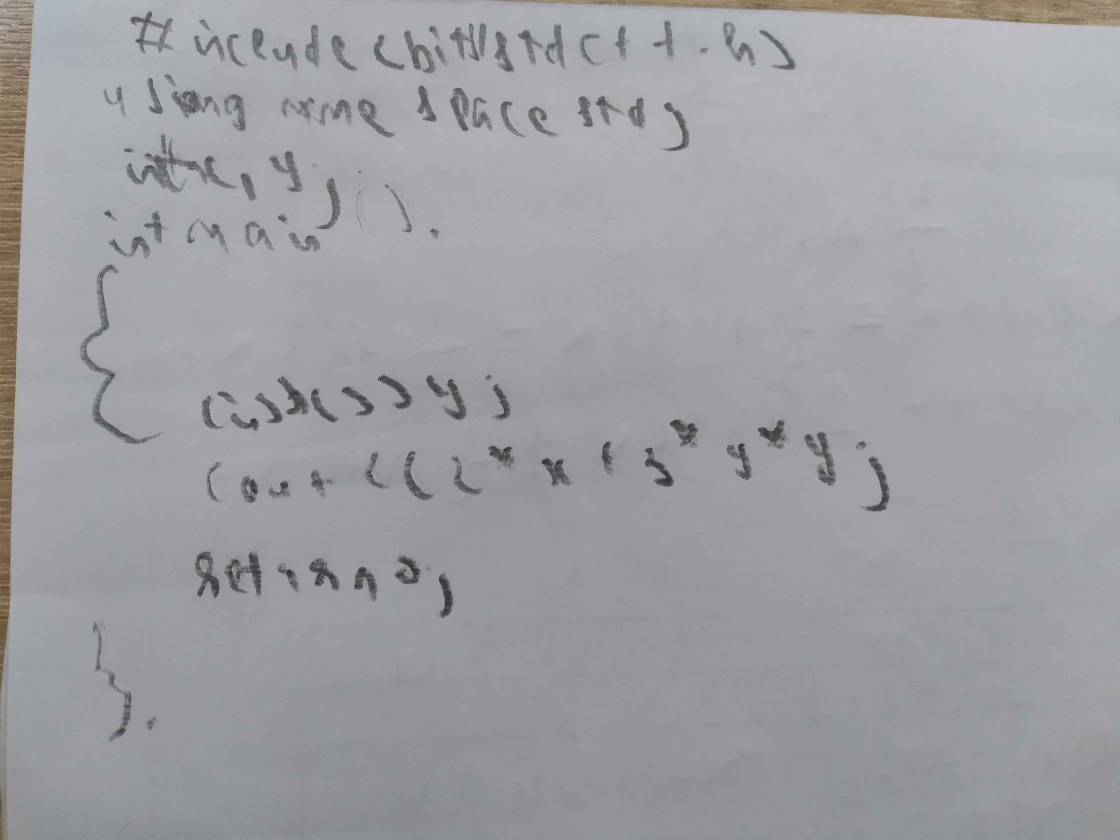 #include <bits/stdc++.h>
using name space std;
int x, y;
int main ().
{
cin>>x>>y;
cout<<2*x+3*y*y;
return 0;
}.